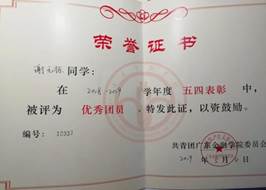 荣誉证书
同学：
在 2018-2019 学年度 五四表彰 中，
被评为 优秀团员 。特发此证，以资鼓励。
编号：
共青团广东金融学院委员会
2019 年 月 日